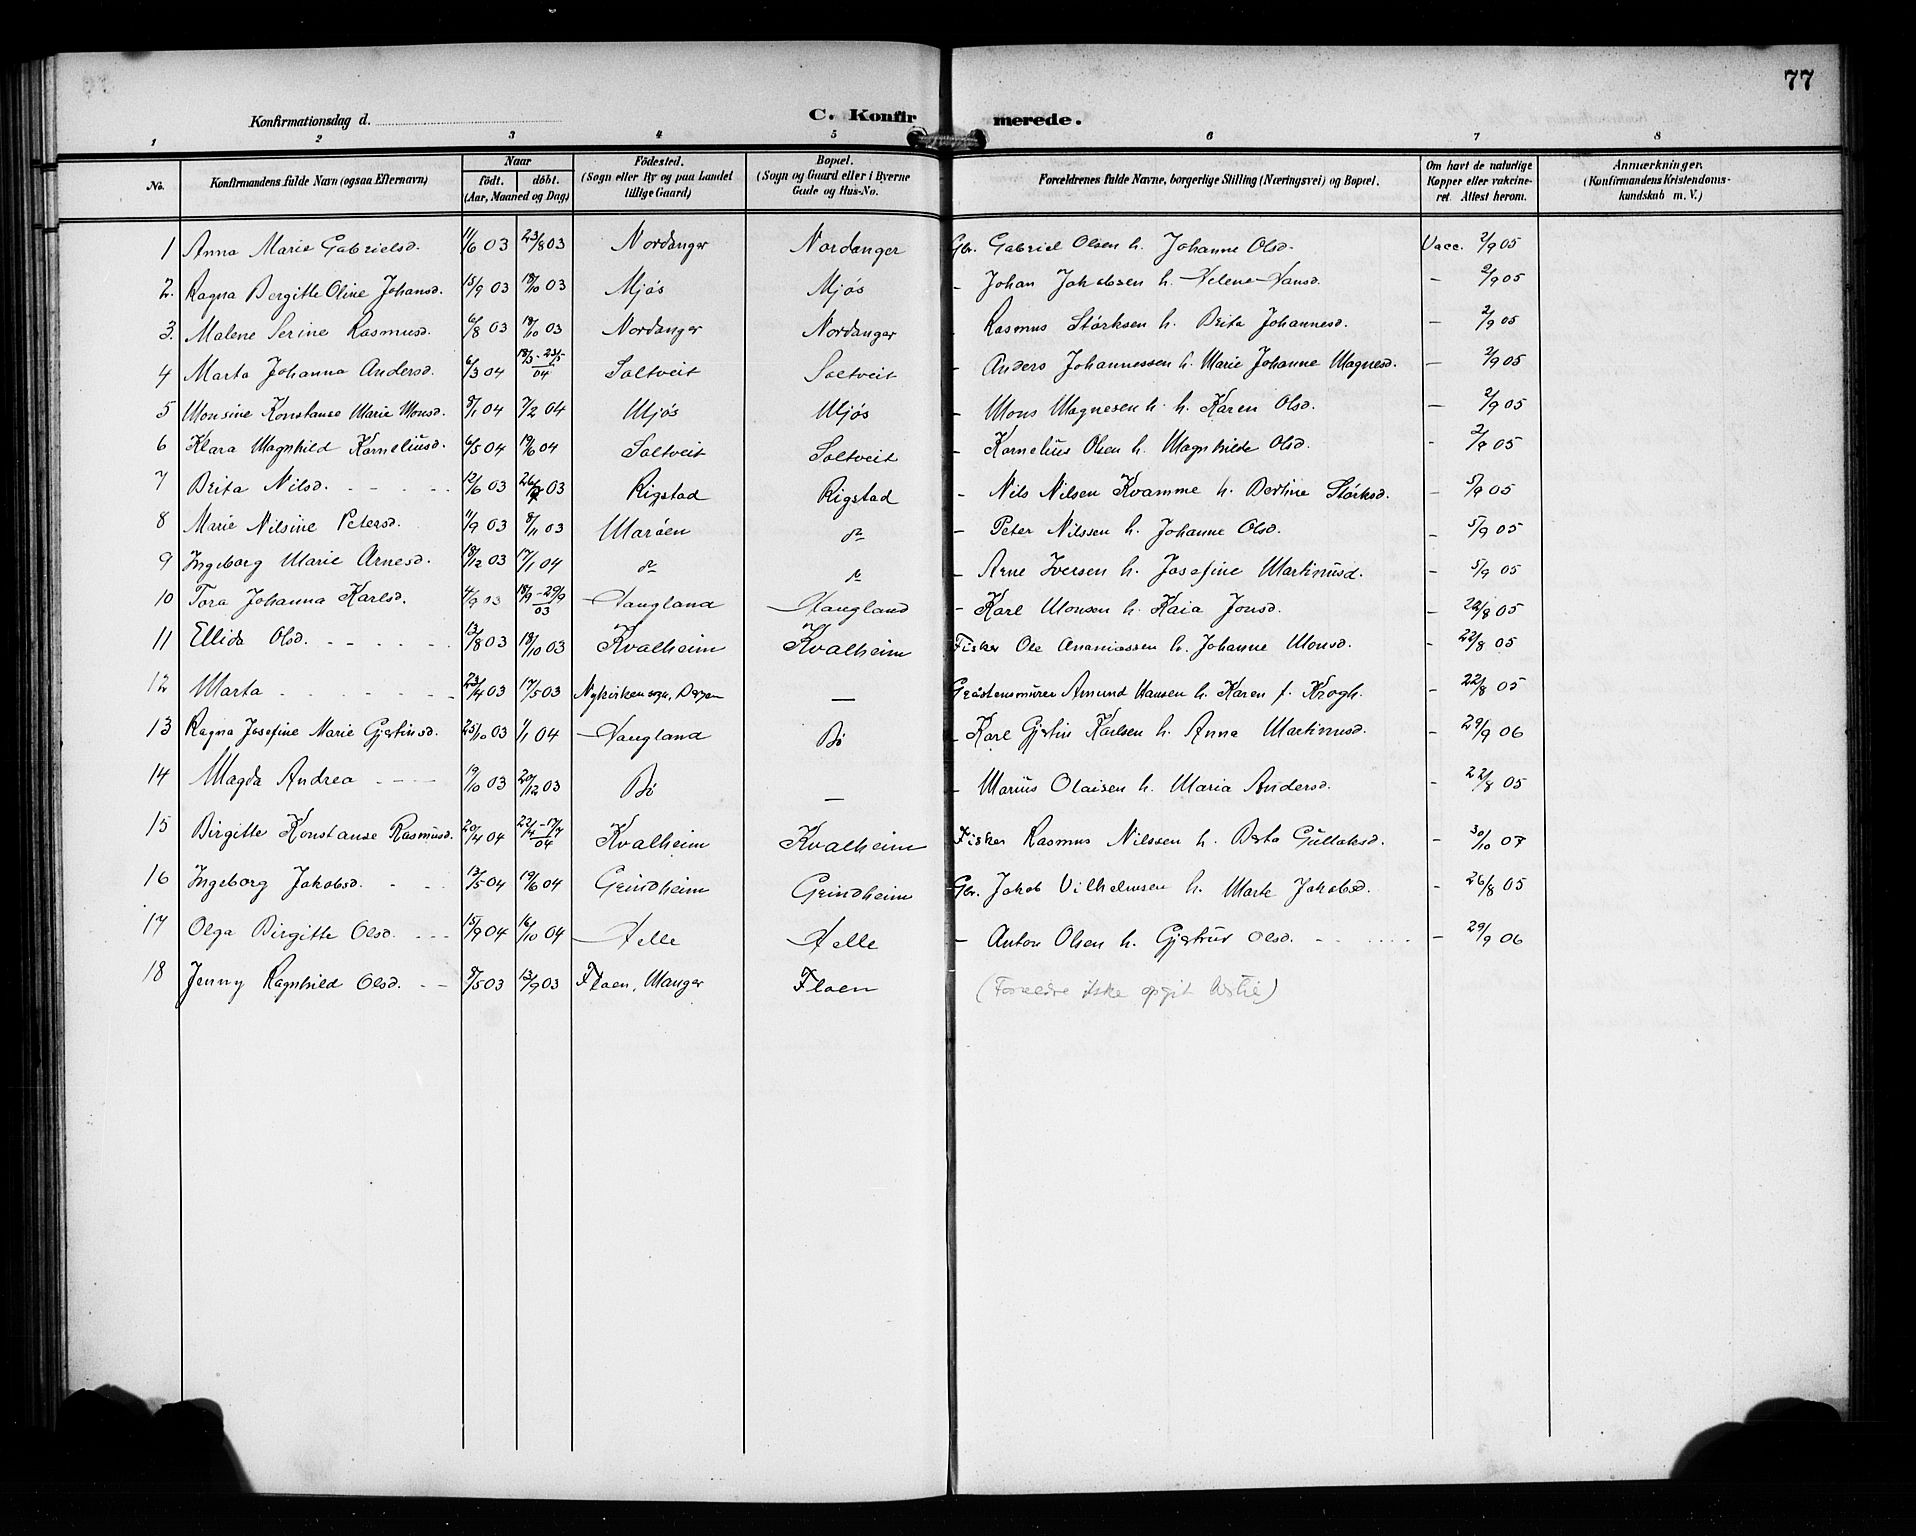 77
Konfirmationsdag d. C. Konfir merede.
1 2 3 4 5 6 7 8
No. Konfirmandens fulde Navn (ogsaa Efternavn) Naar födt. döbt. (Aar, Maaned og Dag) Födested. (Sogn eller By og paa Landet tillige Gaard) Bopæl. (Sogn og Gaard eller i Byerne Gade og Hus-No. Forældrenes fulde Navne, borgerlige Stilling (Næringsvei) og Bopæl. Om havt de naturlige Kopper eller vakcineret. Attest herom. Anmærkninger. (Konfirmandens Kristendomskundskab m. V.)
1 Anna Marie Gabrielsd. 11/6 03 23/8 03 Nordanger Nordanger Gbr. Gabriel Olsen h. Johanne Olsd. Vacc. 2/9 05
2. Ragna Bergitte Oline Johansd. 15/9 03 18/10 03 Mjøs Mjøs – Johan Jakobsen h. Helene Hansd. – 2/9 05
3. Malene Serine Rasmusd. 6/8 03 18/10 03 Nordanger Nordanger Rasmus Størksen h. Brita Johannesd. – 2/9 05
4 Marta Johanna Andersd. 6/3 04 13/3 - 23/5 04 Soltveit Soltveit – Anders Johannessen h. Marie Johanne Magnesd. – 2/9 05
5 Monsine Konstanse Marie Monsd. 8/1 04 7/2 04 Mjøs Mjøs – Mons Magnesen h. h. Karen Olsd. – 2/9 05
6 Klara Magnhild Korneliusd. 6/5 04 19/6 04 Soltveit Soltveit – Kornelius Olsen h. Magnhilde Olsd. – 2/9 05
7 Brita Nilsd. 12/6 03 26/7 03 Rigstad Rigstad – Nils Nilsen Kvamme h. Bertine Størksd. – 5/9 05
8 Marie Nilsine Petersd. 11/9 03 8/11 03 Marøen do – Peter Nilssen h. Johanne Olsd. – 5/9 05
9 Ingeborg Marie Arnesd. 18/12 03 17/1 04 do do – Arne Iversen h. Josefine Martinusd. – 5/9 05
10 Tora Johanna Karlsd. 4/9 03 18/9 - 29/9 03 Haugland Haugland – Karl Monsen h. Kaia Jonsd. – 22/8 05
11 Ellida Olsd. 13/8 03 18/10 03 Kvalheim Kvalheim Fisker Ole Ananiassen h. Johanne Monsd. – 22/8 05
12 Marta 23/4 03 17/5 03 Nykirken sogn, Bergen – Gråstensmurer Amund Hansen h. Karen f. Krogh. – 22/8 05
13 Ragna Josefine Marie Gjertinsd. 25/10 03 1/1 04 Haugland Bø – Karl Gjertin Karlsen h. Anna Martinusd. – 29/9 06
14 Magda Andrea 19/10 03 20/12 03 Bø – – Marius Olaisen h. Maria Andersd. – 22/8 05
15 Birgitte Konstanse Rasmusd. 20/4 04 22/4 - 17/7 04 Kvalheim Kvalheim Fisker Rasmus Nilssen h. Berta Gullaksd. – 30/10 07
16 Ingeborg Jakobsd. 13/5 04 19/6 04 Grindheim Grindheim Gbr. Jakob Vilhelmsen h. Marte Jakobsd. – 26/8 05
17 Olga Birgitte Olsd. 15/9 04 16/10 04 Helle Helle – Anton Olsen h. Gjertrud Olsd. – 29/9 06
18 Jenny Ragnhild Olsd. 8/5 03 13/9 03 Floen, Manger Floen (Forældre ikke opgit )